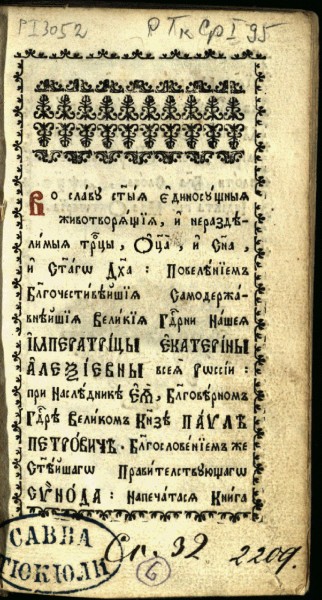 РІ3052
Р Тк Ср І 95
Во славу ст҃ыѧ є҆диносꙋ́щныѧ
животворѧ́щїѧ, и҆ нераздѣ-
ли́мыѧ трⷪ҇цы, Ѻ҆ц҃а̀, и҆ Сн҃а,
и҆ Ст҃а́гѡ Дх҃а : Повелѣ́нїемъ
Бл҃гочести́вѣйшїѧ Самодержа́-
внѣйшїѧ Вели́кїѧ Гдⷭ҇рни На́шеѧ
И҆МПЕРАТРИ́ЦЫ Є҆КАТЕРИ́НЫ
А҆ЛЕѮІ́ЕВНЫ всеѧ̀ Рѡссі́и :
при Наслѣ́дникѣ Є҆Ѧ̀, Бл҃говѣ́рномъ
Гдⷭ҇рѣ Вели́комъ Кнѧ́зѣ ПА́ѴЛѢ
ПЕТРО́ВИЧѢ. Бл҃гослове́нїемъ же
Ст҃ѣ́йшагѡ Прави́телствꙋющагѡ
СѴНО́ДА : Напеча́тасѧ Кни́га
САВВА
ТЮКЮЛИ
Сл. 32
6
2209.